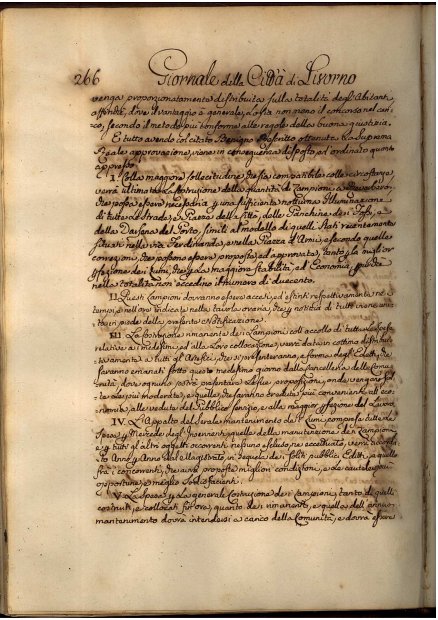 266 Giornale della Città di Livorno
venga proporzionatamente distribuita sulla totalità degl'Abitanti,
affinchè, dove il vantaggio è generale, cosi sia non meno il concorso nel cari=
co, secondo il metodo più conforme alle regole della buona giustizia.
E tutto avendo col citato Benigno Rescritto ottenuta la Suprema
Reale approvazione, viene in conseguenza disposto, ed ordinato quanto
appresso.
I. Colla maggiore sollecitudine che sia compatibile colle circostanze,
verrà ultimata la costruzione della quantità di Lampioni a
che possa essere necessaria per una sufficiente notturna Illuminazione
di tutte le Strade, e Piazze della Città, delle Panchine dei Fossi, e
della Darsena del Porto, simili al modello di quelli stati recentemente
situati nella via Ferdinanda, e nella Piazza d'Arme, e secondo quelle
correzioni, che possono essere proposte ed approvate, tanto per la miglior
perfezione dei lumi, che per la maggiore stabilità, ed Economia, purchè
nella totalità non eccedino il numero di duecento.
II. Questi Lampioni dovranno essere accesi, ed estinti respettivamente nei
tempi, e nelle ore indicate nella tavola oraria, che per notizia di tutti viene unita
in piede della presente Notificazione.
III. La costruzione rimanente dei Lampioni coll'accollo di tutte le spese
relative ai medesimi, ed alla Loro collocazione, verrà data in cottimo distribu=
tivamente a tutti gl'Artefici, che si presenteranno, a forma degl'Editti, che
saranno emanati sotto questo medesimo giorno dalla Cancelleria della Comu=
nità, dove ognuno potrà presentare le sue proposizioni, onde vengano scelte
le più moderate, e quelle, che saranno credute più convenienti all'eco=
nomia, alle vedute del Pubblico servizio, e alla maggior perfezione del Lavoro.
IV. L'Appalto del serale mantenimento dei Lumi, compresa tutte le
Spese, e Mercede degl'Inservienti, quelle della manutenzione dei Lampioni,
e per tutti gl'altri oggetti occorrenti, nessuno escluso, nè eccettuato, verrà accordato
Anno per Anno dal Magistrato, in sequela dei soliti pubblici Editti, a quello
frà i concorrenti, che avrà proposte migliori condizioni, e date cautele più
opportune, e meglio sodisfacienti.
V. La spesa per la generale costruzione dei Lampioni, tanto di quelli
costruiti, e collocati fin'ora, quanto dei rimanenti, e quella dell'annuo
mantenimento dovrà intendersi a carico della Comunità, e dovrà essere